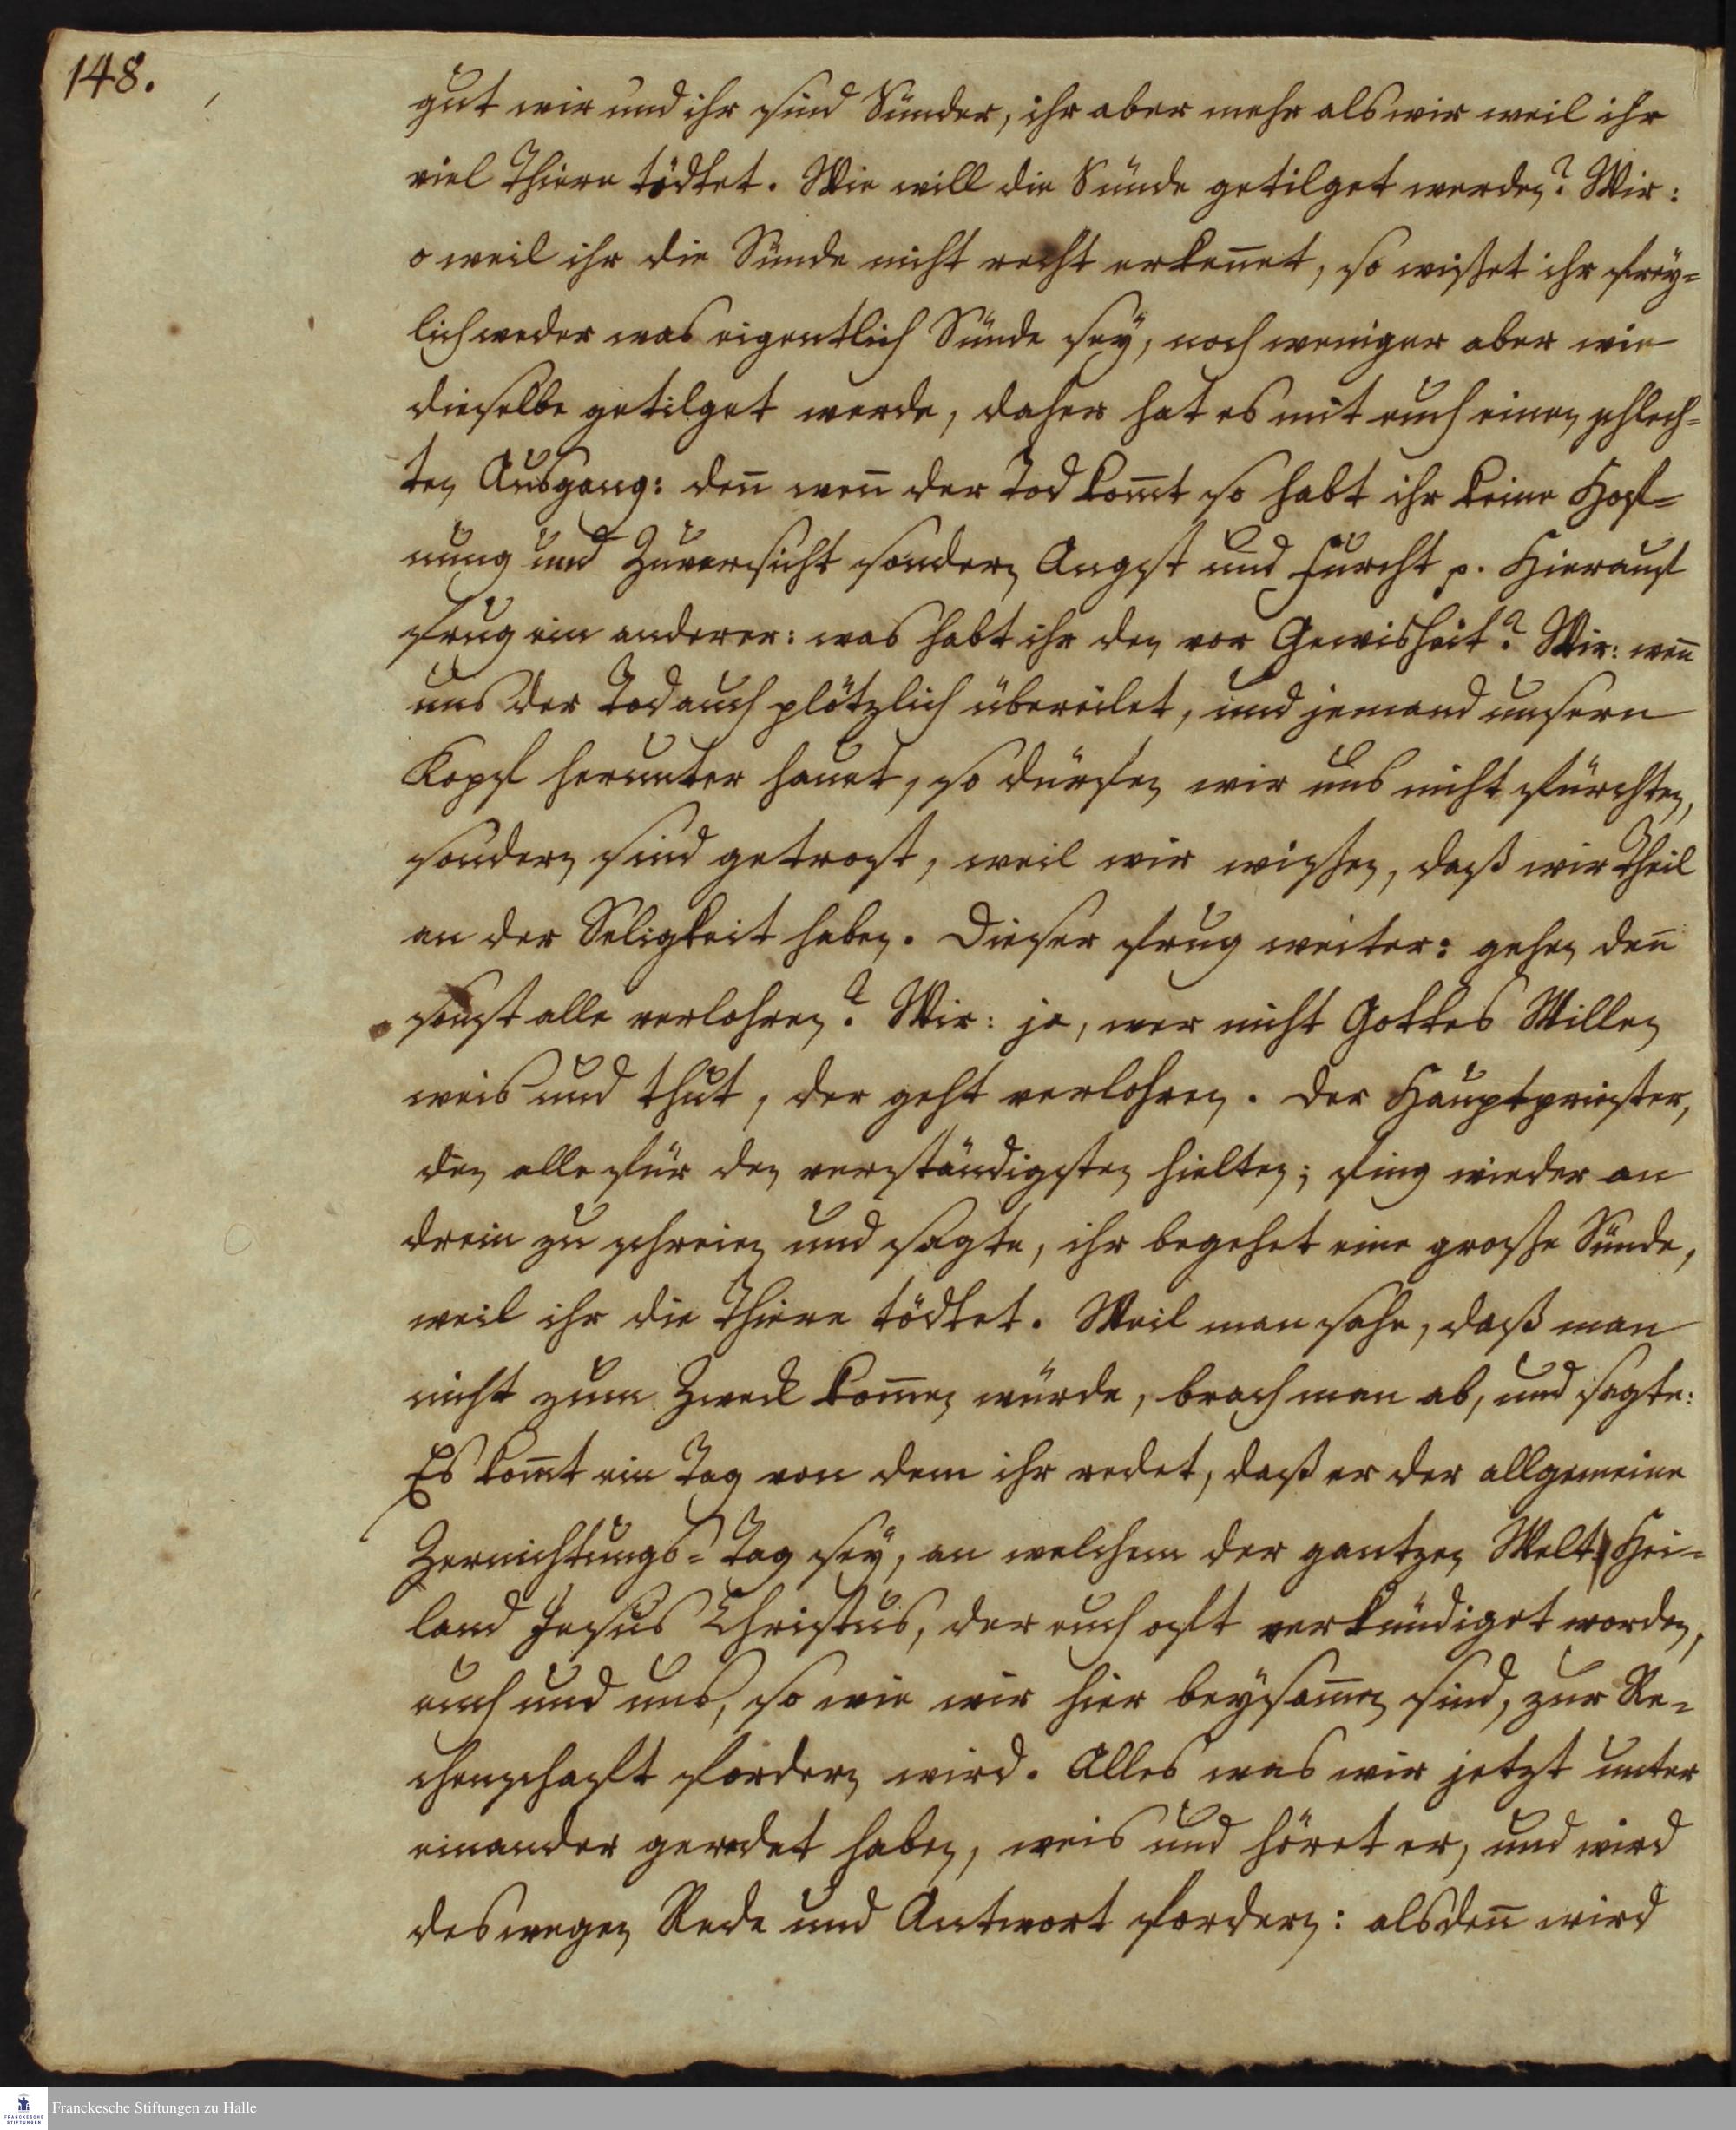 148.
gut wir und ihr sind Sünder, ihr aber mehr als wir weil ihr
viel Thiere tödtet. Wie will die Sünde getilget werden? Wir:
o weil ihr die Sünde nicht recht erken̄et, so wißet ihr frey=
lich weder was eigentlich Sünde sey, noch weniger aber wie
dieselbe getilget werde, daher hat es mit euch einen schlech=
ten Ausgang: den̄ wen̄ der Tod kom̄t so habt ihr keine Hof=
nung und Zuversicht sondern Angst und Furcht p. Hierauf
frug ein anderer: was habt ihr den vor Gewisheit? Wir: wen̄
uns der Tod auch plötzlich übereilet, und jemand unsern
Kopf herunter hauet, so dürfen wir uns nicht fürchten,
sondern sind getrost, weil wir wißen, daß wir Theil
an der Seligkeit haben. Dieser frug weiter: gehen den̄
sonst alle verlohren? Wir: ja, wer nicht Gottes Willen
weis und thut, der geht verlohren. Der Hauptpriester,
den alle für den verständigsten hielten; fing wieder an
drein zu schreien und sagte, ihr begehet eine große Sünde,
weil ihr die Thiere tödtet. Weil man sahe, daß man
nicht zum Zweck kom̄en würde, brach man ab, und sagte:
Es kom̄t ein Tag von dem ihr redet, daß er der allgemeine
Zernichtungs=Tag sey, an welchem der gantzen Welt Hei=
land Jesus Christus, der euch oft verkündiget worden,
euch und uns, so wie wir hier beysam̄en sind, zur Re=
chenschaft fordern wird. Alles was wir jetzt unter
einander geredet haben, weis und höret er, und wird
deswegen Rede und Antwort fordern: alsden̄ wird
Franckesche Stiftungen zu Halle
FRANCKESCHE
STIFTUNGEN